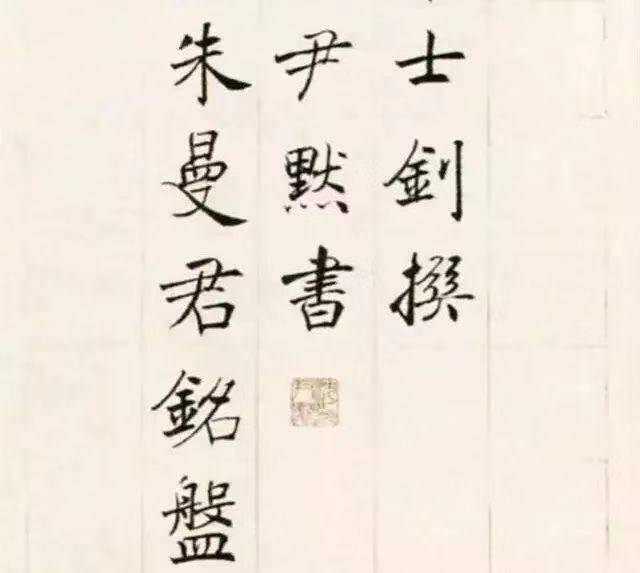 士釗撰
尹默書
朱曼君銘盤